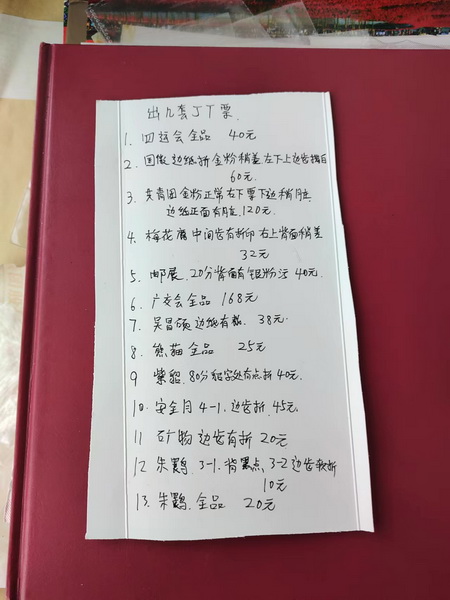 出几套JT票.
1. 四运会全品 40元
2. 国徽边纸折金粉稍差左下上边齿揭白
60元.
3. 共青团金粉正常右下票下边稍脏
边纸正面有脏. 120元.
4. 梅花鹿中间齿有折印右上背面稍差
32元
5. 邮展. 20分背面有银粉 40元.
6. 广交会全品 168元
7. 吴昌硕边纸有裁. 38元.
8. 熊猫全品 25元
9 紫貂. 80分貂字处有点折40元.
10. 安全月4-1. 边齿折. 45元.
11 矿物边齿有折20元
12 朱鹮. 3-1. 背黑点 3-2边齿软折
10元
13. 朱鹮. 全品 20元